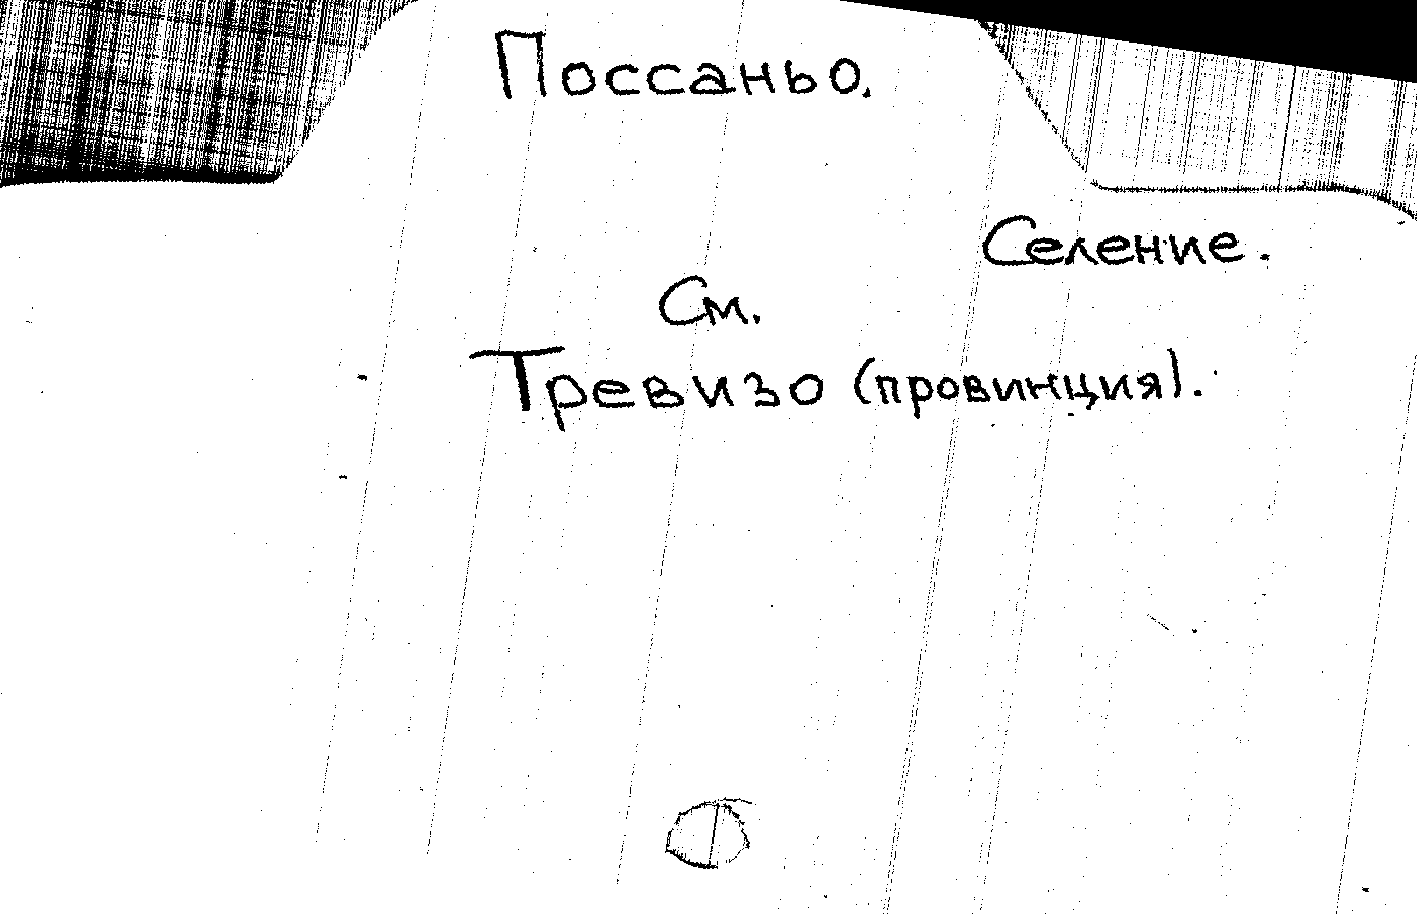 Поссаньо.
Селение.
См.
Тревизо (провинция).